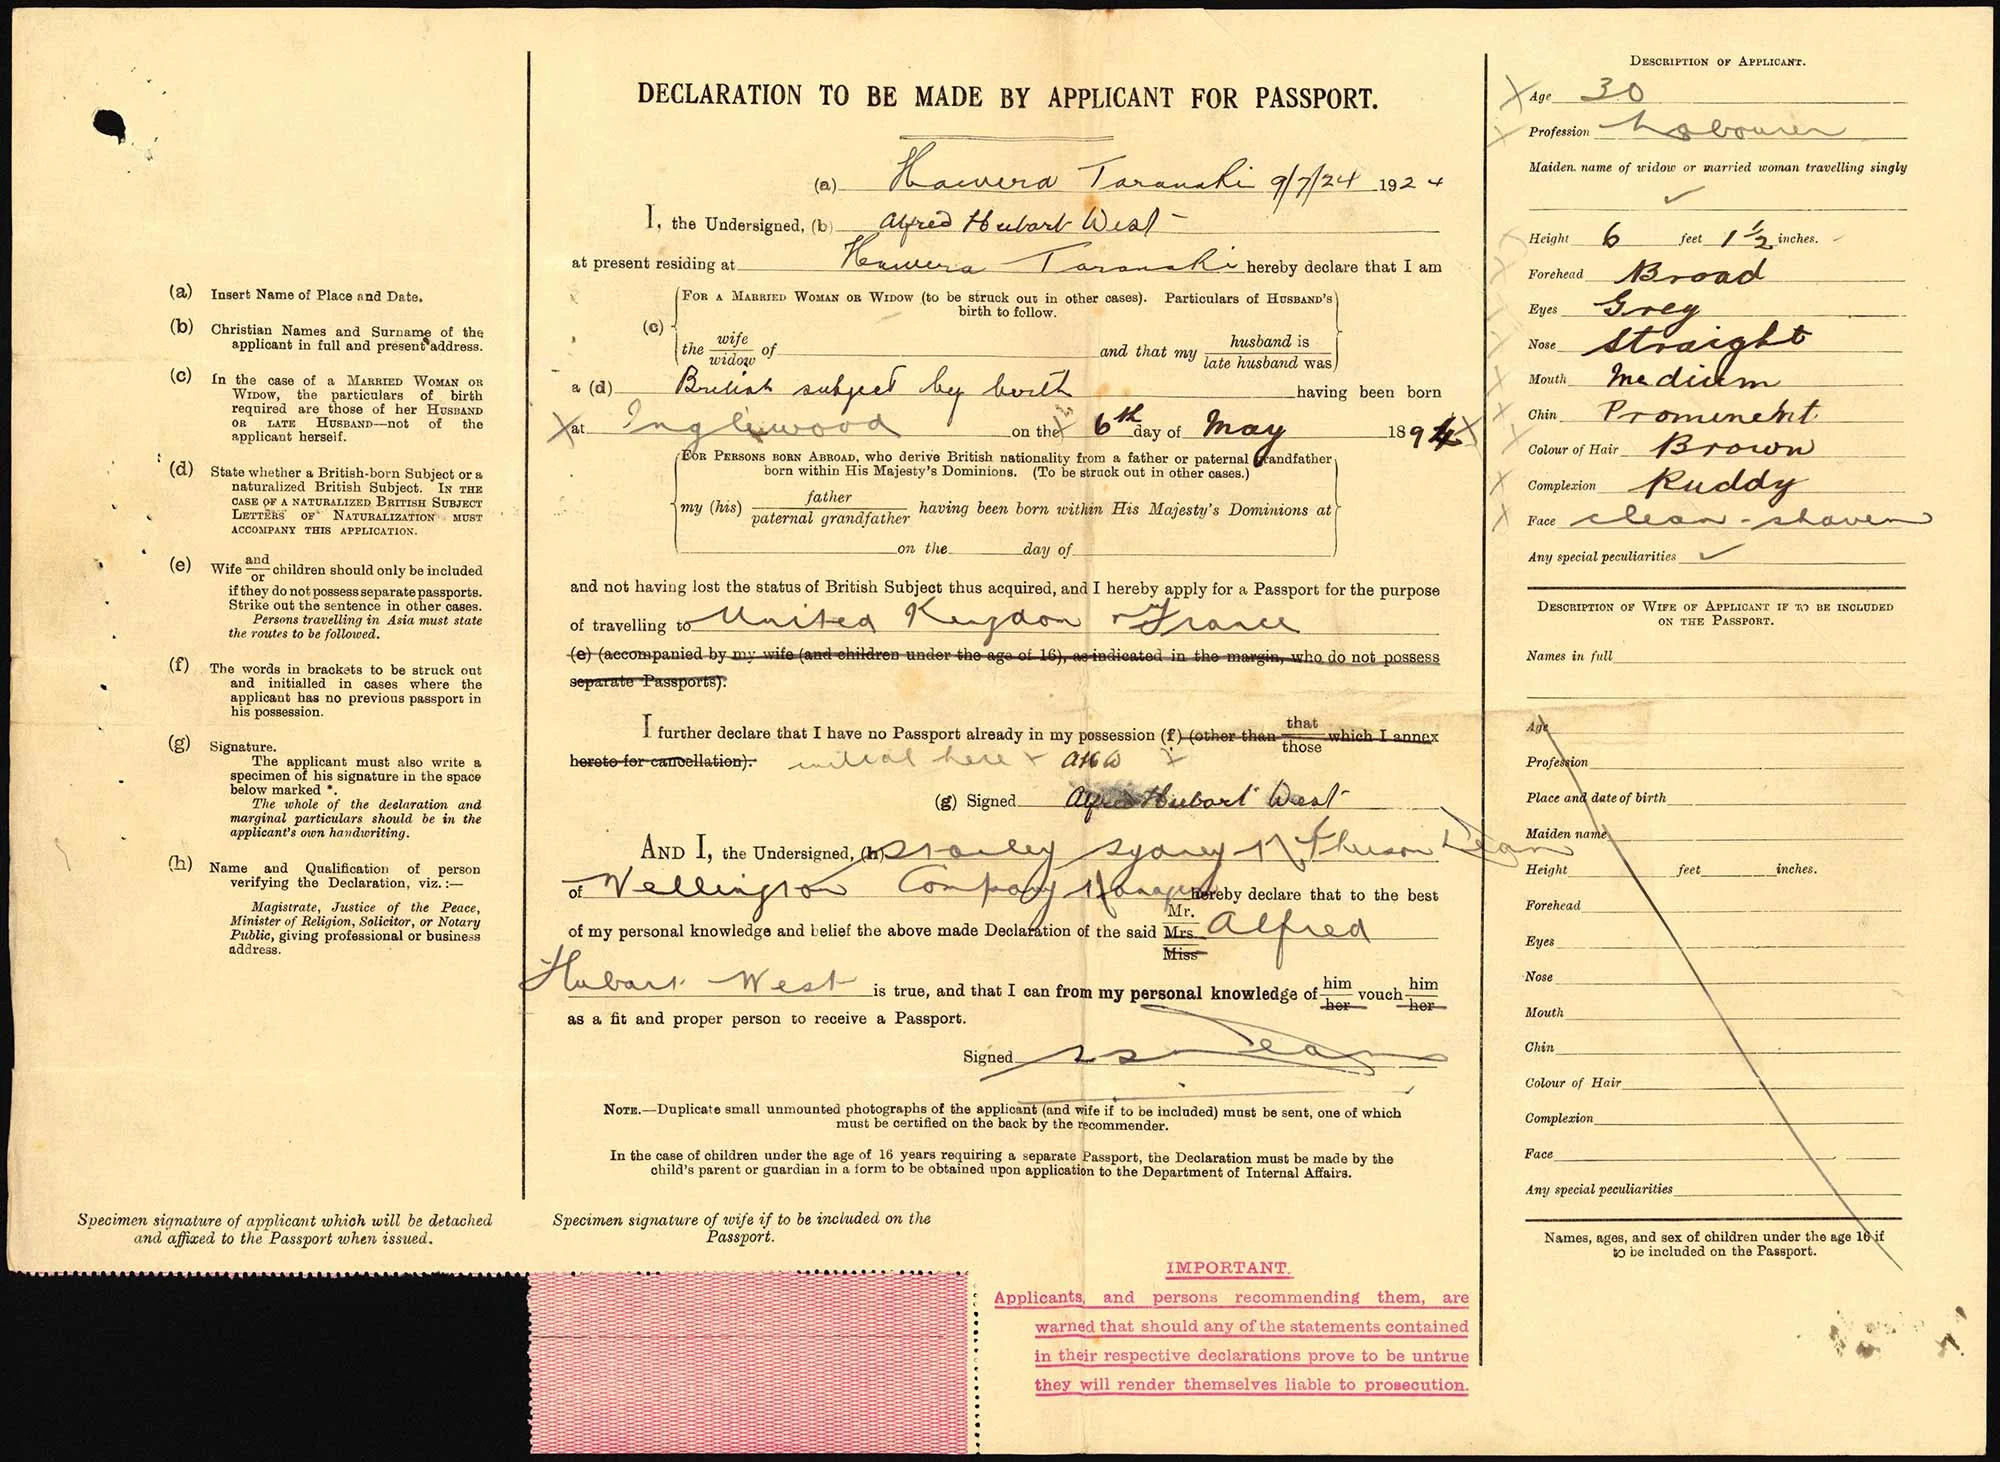 DECLARATION TO BE MADE BY APPLICANT FOR PASSPORT.
(a) Hawera Taranaki 9/7/24 1924
I, the Undersigned, (b) Alfred Hubart West
at present residing at Hawera Taranaki hereby declare that I am
(c) FOR A MARRIED WOMAN OR WIDOW (to be struck out in other cases). Particulars of HUSBAND'S
birth to follow.
the wife/widow of and that my husband is/late husband was
a (d) British subject by birth having been born
at Inglewood on the 6th day of May 1894
FOR PERSONS BORN ABROAD, who derive British nationality from a father or paternal grandfather
born within His Majesty's Dominions. (To be struck out in other cases.)
my (his) father/paternal grandfather having been born within His Majesty's Dominions at
on the day of
and not having lost the status of British Subject thus acquired, and I hereby apply for a Passport for the purpose
of travelling to United Kingdom France
(e) (accompanied by my wife (and children under the age of 16), as indicated in the margin, who do not possess
separate Passports).
I further declare that I have no Passport already in my possession (f) (other than that/those which I annex
hereto for cancellation). initial here x AHW x
(g) Signed Alfred Hubart West
AND I, the Undersigned, (h) Stanley Sydney Dean
of Wellington Company Manager hereby declare that to the best
of my personal knowledge and belief the above made Declaration of the said Mr. Mrs. Miss Alfred
Hubart West is true, and that I can from my personal knowledge of him/her vouch him/her
as a fit and proper person to receive a Passport.
Signed
NOTE.—Duplicate small unmounted photographs of the applicant (and wife if to be included) must be sent, one of which
must be certified on the back by the recommender.
In the case of children under the age of 16 years requiring a separate Passport, the Declaration must be made by the
child's parent or guardian in a form to be obtained upon application to the Department of Internal Affairs.
(a) Insert Name of Place and Date.
(b) Christian Names and Surname of the
applicant in full and present address.
(c) In the case of a MARRIED WOMAN OR
WIDOW, the particulars of birth
required are those of her HUSBAND
OR LATE HUSBAND—not of the
applicant herself.
(d) State whether a British-born Subject or a
naturalized British Subject. IN THE
CASE OF A NATURALIZED BRITISH SUBJECT
LETTERS OF NATURALIZATION MUST
ACCOMPANY THIS APPLICATION.
(e) Wife and/or children should only be included
if they do not possess separate passports.
Strike out the sentence in other cases.
Persons travelling in Asia must state
the routes to be followed.
(f) The words in brackets to be struck out
and initialled in cases where the
applicant has no previous passport in
his possession.
(g) Signature.
The applicant must also write a
specimen of his signature in the space
below marked *.
The whole of the declaration and
marginal particulars should be in the
applicant's own handwriting.
(h) Name and Qualification of person
verifying the Declaration, viz.:—
Magistrate, Justice of the Peace,
Minister of Religion, Solicitor, or Notary
Public, giving professional or business
address.
Specimen signature of applicant which will be detached
and affixed to the Passport when issued.
Specimen signature of wife if to be included on the
Passport.
IMPORTANT.
Applicants, and persons recommending them, are
warned that should any of the statements contained
in their respective declarations prove to be untrue
they will render themselves liable to prosecution.
DESCRIPTION OF APPLICANT.
Age 30
Profession Labourer
Maiden name of widow or married woman travelling singly
Height 6 feet 1 1/2 inches.
Forehead Broad
Eyes Grey
Nose Straight
Mouth Medium
Chin Prominent
Colour of Hair Brown
Complexion Ruddy
Face clean-shaven
Any special peculiarities
DESCRIPTION OF WIFE OF APPLICANT IF TO BE INCLUDED
ON THE PASSPORT.
Names in full
Age
Profession
Place and date of birth
Maiden name
Height feet inches.
Forehead
Eyes
Nose
Mouth
Chin
Colour of Hair
Complexion
Face
Any special peculiarities
Names, ages, and sex of children under the age 16 if
to be included on the Passport.